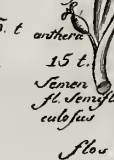 5. t
anthera
15 t.
Semen
fl. Semifl
culosus
flos